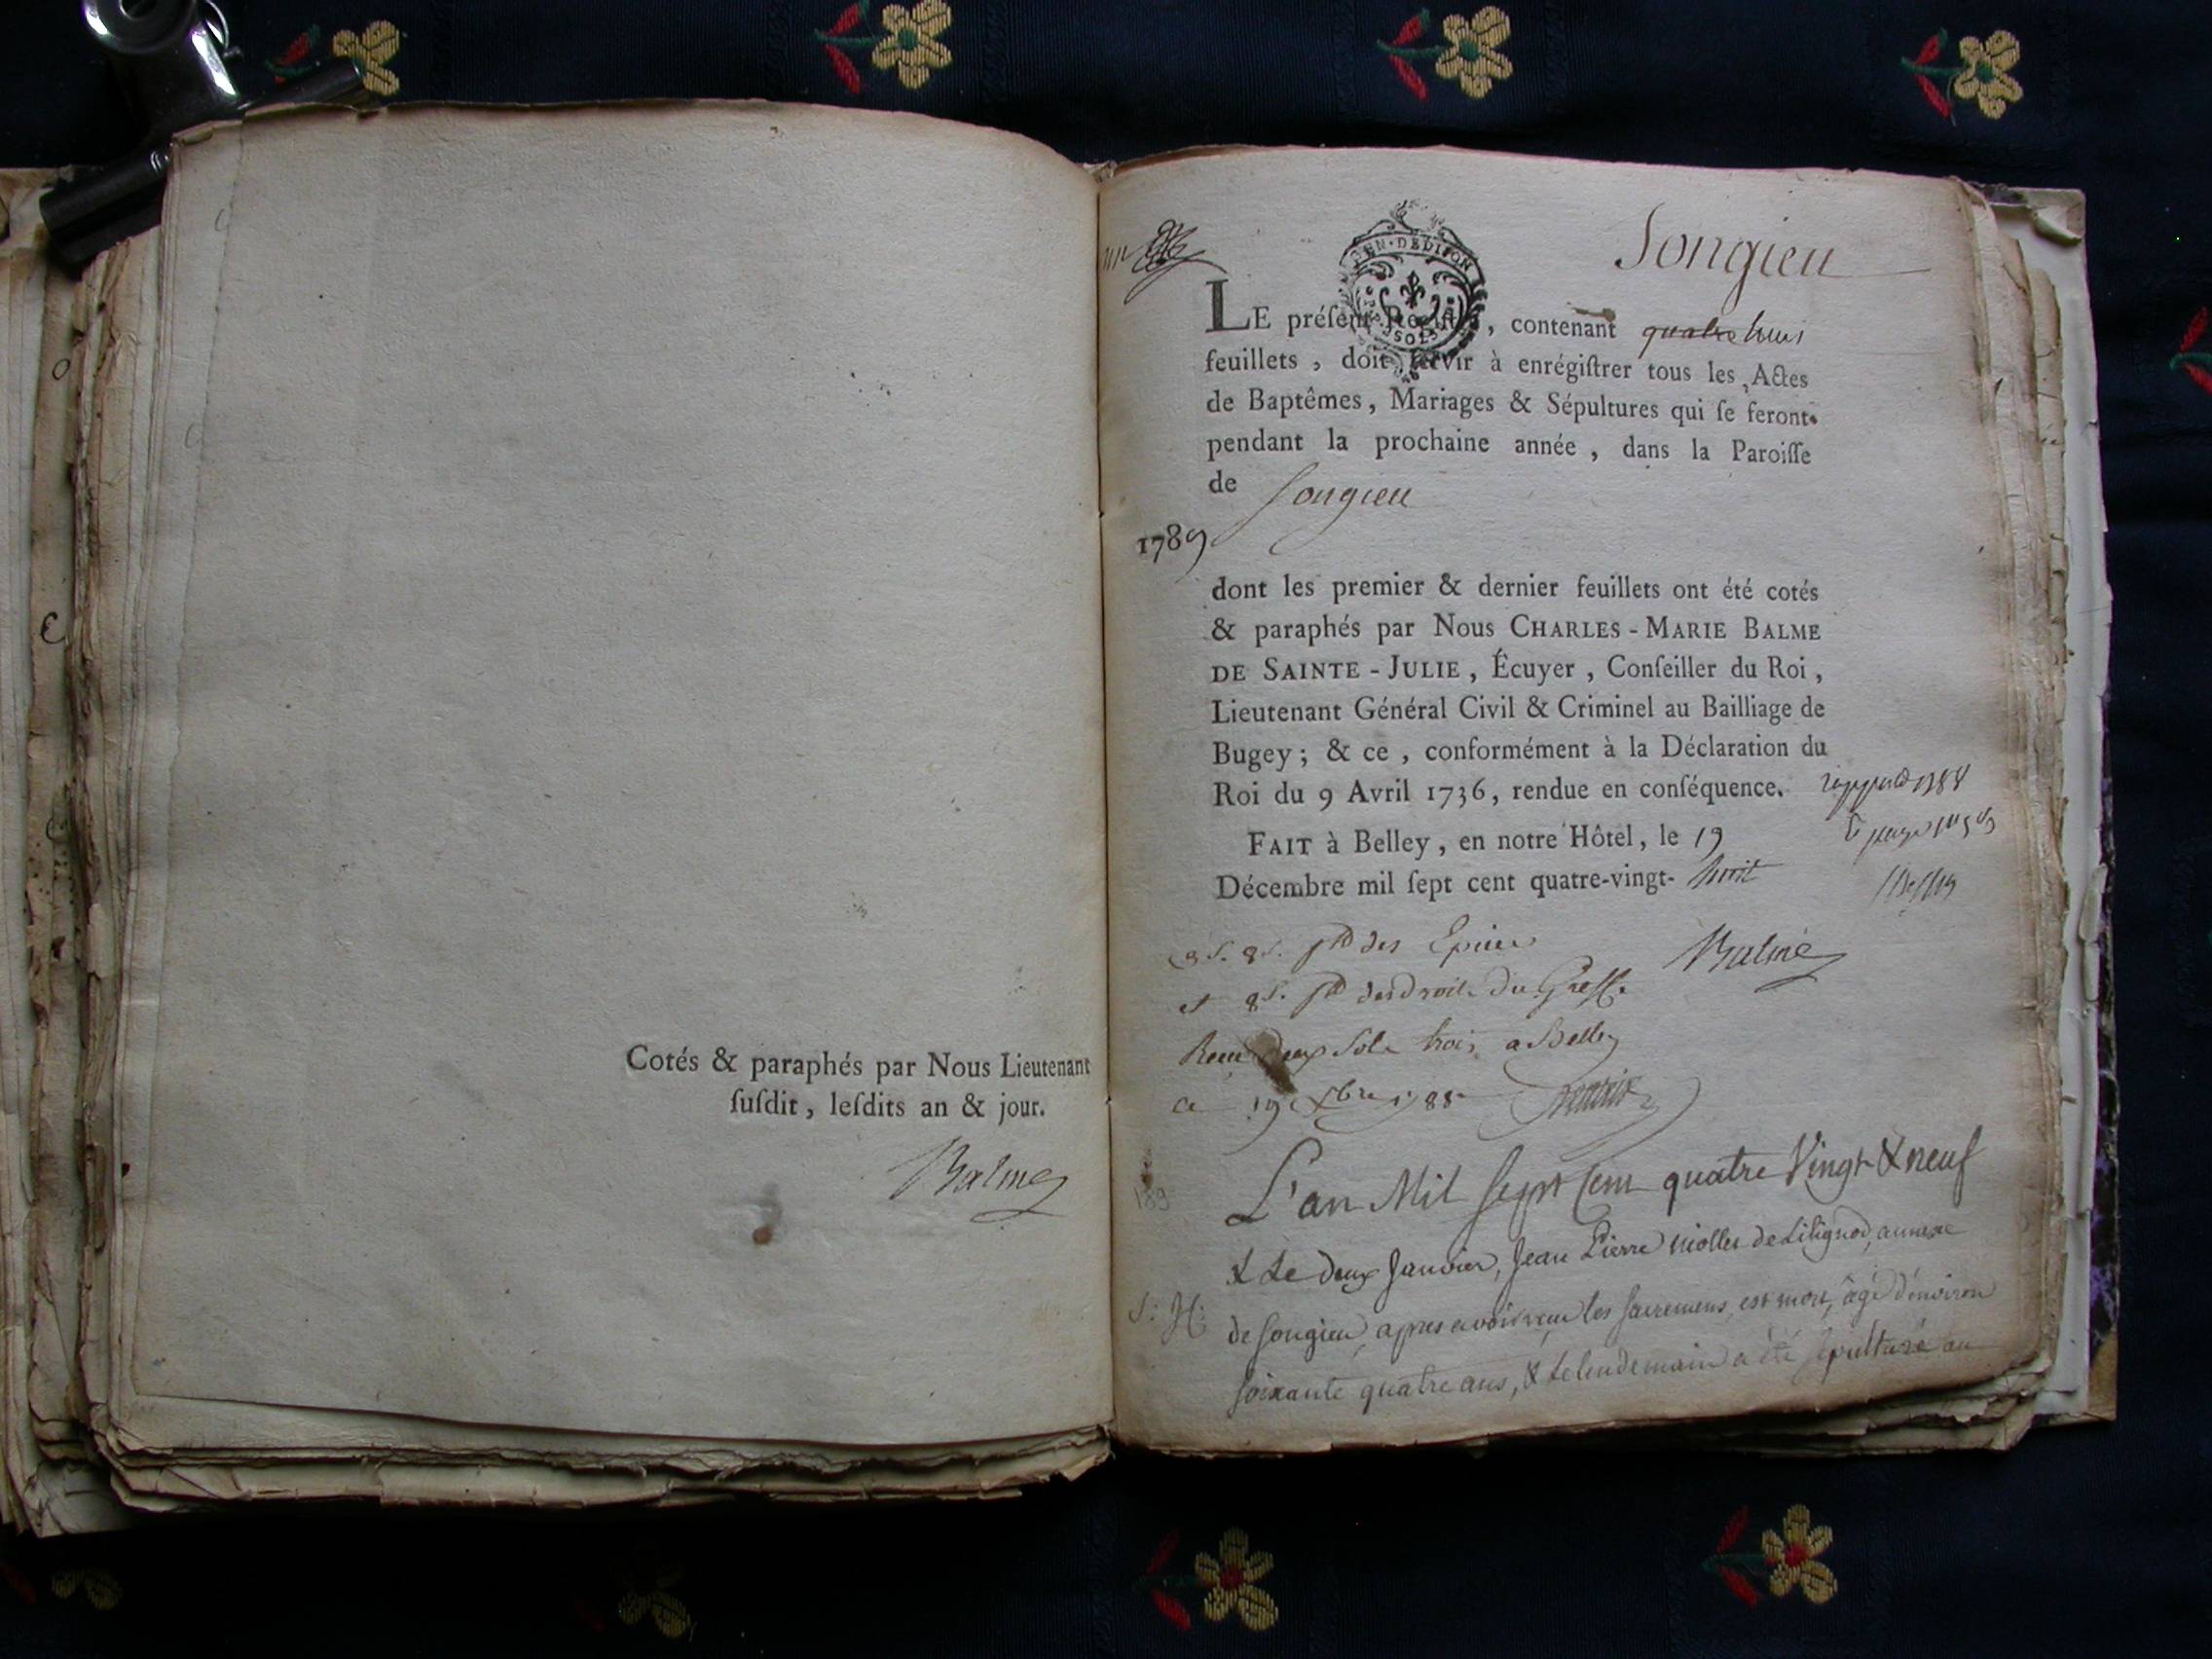 Cotés & paraphés par Nous Lieutenant
ſuſdit, leſdits an & jour.
Balme
Songieu
GEN. DE DIJON
SOLS
LE préſent Regiſtre, contenant quatre huit
feuillets, doit ſervir à enrégiſtrer tous les Actes
de Baptêmes, Mariages & Sépultures qui ſe feront
pendant la prochaine année, dans la Paroiſſe
de Songieu
1789
dont les premier & dernier feuillets ont été cotés
& paraphés par Nous CHARLES-MARIE BALME
DE SAINTE-JULIE, Écuyer, Conſeiller du Roi,
Lieutenant Général Civil & Criminel au Bailliage de
Bugey; & ce, conformément à la Déclaration du
Roi du 9 Avril 1736, rendue en conſéquence.
FAIT à Belley, en notre Hôtel, le 19
Décembre mil ſept cent quatre-vingt- huit
des Epices
Balme
et 8s. des droits du Greffe
Receu deux sols trois a Belley
ce 19 Xbre 1788
189
L'an Mil sept cent quatre Vingt & neuf
& le deux Janvier, Jean Pierre de Lilignod, annexe
S: H:
de Songieu, apres avoir reçu les sacremens, est mort, âgé d'environ
soixante quatre ans, & le lendemain a été sépulturé au